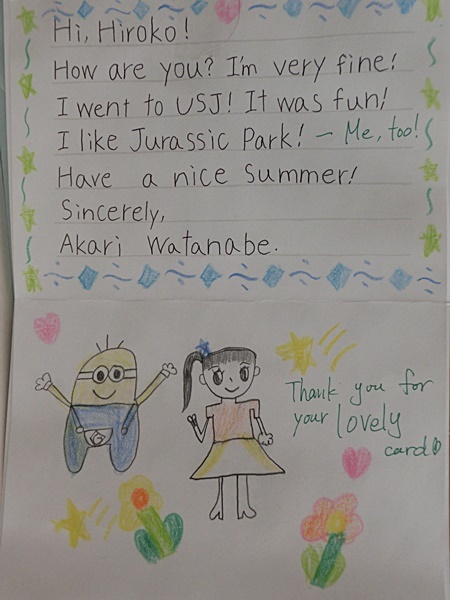 Hi, Hiroko!
How are you? I'm very fine!
I went to USJ! It was fun!
I like Jurassic Park! – Me, too!
Have a nice summer!
Sincerely,
Akari Watanabe.
Thank you for
your lovely
card